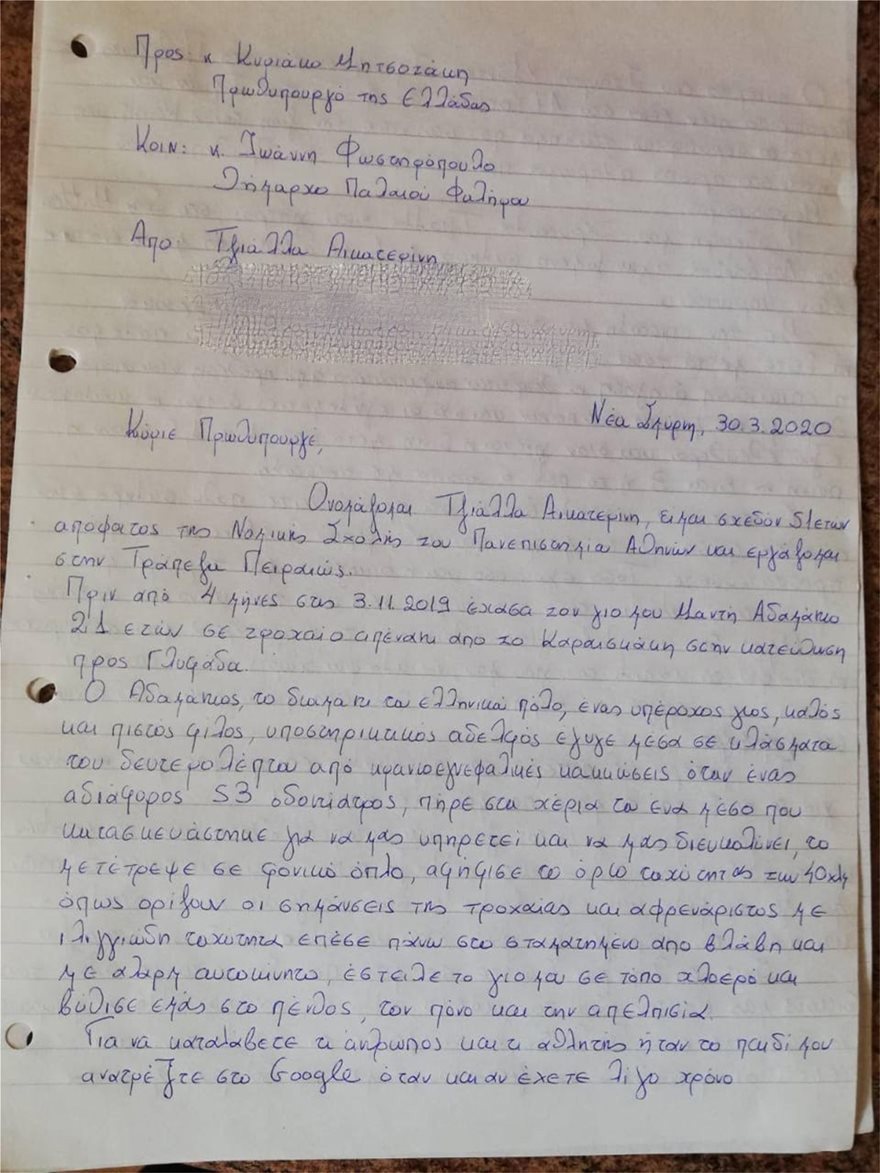 Προς: κ Κυριάκο Μητσοτάκη
Πρωθυπουργό της Ελλάδας
Κοιν: κ. Ιωάννη Φωστηρόπουλο
Δήμαρχο Παλαιού Φαλήρου
Απο: Τζιάλλα Αικατερίνη
Νέα Σμύρνη, 30.3.2020
Κύριε Πρωθυπουργέ,
Ονομάζομαι Τζιάλλα Αικατερίνη, ειμαι σχεδόν 51ετων
απόφοιτος της Νομικής Σχολής του Πανεπιστημίου Αθηνών και εργάζομαι
στην Τράπεζα Πειραιώς.
Πριν από 4 μήνες στις 3.11.2019 έχασα τον γιο μου Μαντή Αδαμάντιο
21 ετών σε τροχαίο απέναντι απο το Καραισκάκη στην κατεύθυνση
προς Γλυφάδα.
Ο Αδαμάντιος, το διαμάντι του ελληνικού πόλο, ένας υπέροχος γιος, καλός
και πιστός φίλος, υποστηρικτικός αδελφός έφυγε μέσα σε κλάσματα
του δευτερολέπτου από κρανιοεγκεφαλικές κακώσεις όταν ένας
αδιάφορος 53 οδοντίατρος, πήρε στα χέρια του ενα μέσο που
κατασκευάστηκε για να μας υπηρετεί και να μας διευκολύνει, το
μετέτρεψε σε φονικό όπλο, αψήφισε το όριο ταχύτητας των 40χλμ
όπως ορίζουν οι σημάνσεις της τροχαίας και αφρενάριστος με
ιλιγγιώδη ταχύτητα επέσε πάνω στο σταματημένο απο βλάβη και
με αλαρμ αυτοκίνητο, έστειλε το γιο μου σε τόπο χλοερό και
βύθισε εμάς στο πένθος, τον πόνο και την απελπισία.
Για να καταλάβετε τι άνθρωπος και τι αθλητής ήταν το παιδί μου
ανατρέξτε στο Google όταν και αν έχετε λίγο χρόνο